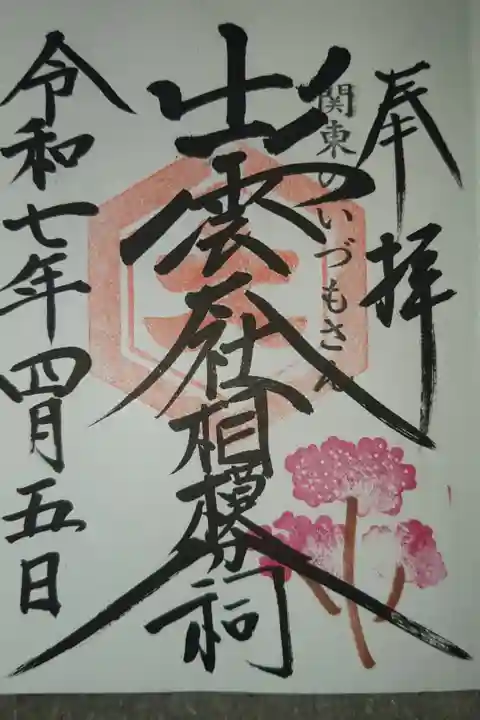 奉拝
関東のいづもさん
出雲大社相模分祠
令和七年四月五日